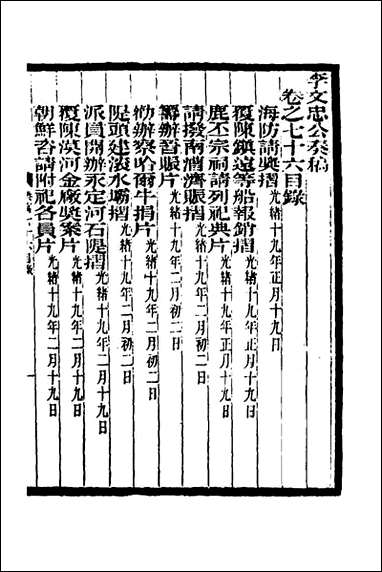 李文忠公奏稿
卷之七十六目錄
海防請奬摺光緒十九年正月十九日
覆陳鎮遠等船報銷摺光緒十九年正月十九日
鹿丕宗祠請列祀典片光緒十九年正月十九日
請撥南漕濟賑摺光緒十九年二月初二日
籌辦晉賑片光緒十九年二月初二日
協辦察哈爾牛捐片光緒十九年二月初二日
隄頭建淡水壩摺光緒十九年二月初二日
派員開辦永定河石隄摺光緒十九年二月十九日
覆陳漠河金廠奬案片光緒十九年二月十九日
朝鮮咨請附祀各員片光緒十九年二月十九日